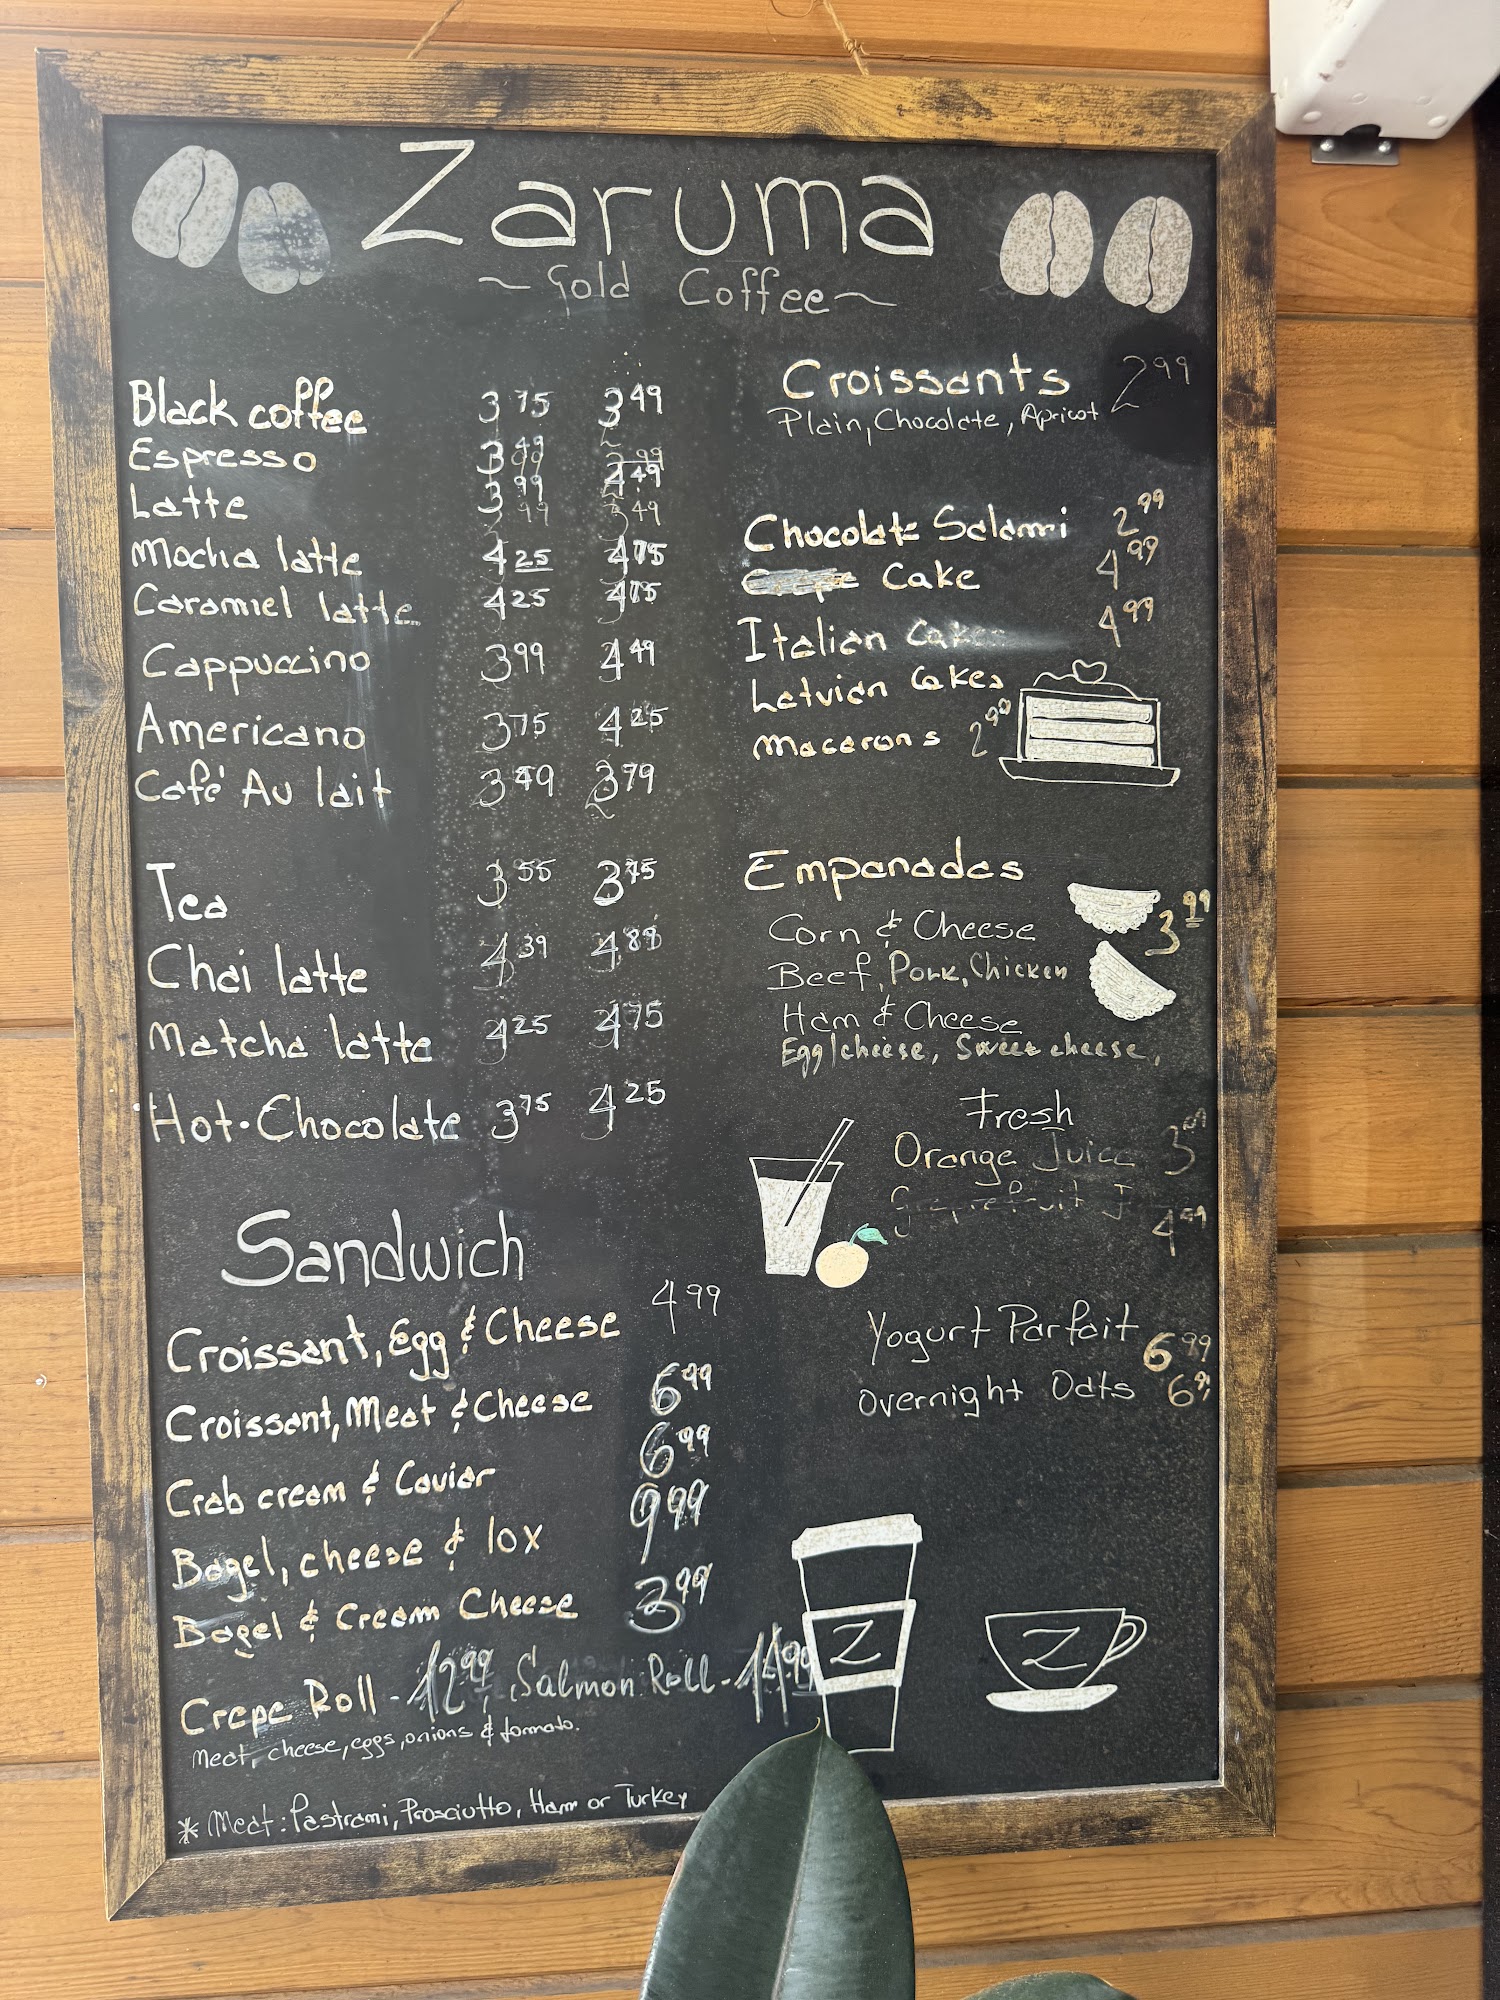 Zaruma
~ Gold Coffee ~
Black coffee 3.75 3.49
Espresso
Latte
Mocha latte 4.25 4.75
Caramel latte 4.25 4.75
Cappuccino 3.99 4.49
Americano 3.75 4.25
Café Au lait 3.49 3.79
Tea 3.55 3.75
Chai latte 4.39 4.89
Matcha latte 4.25 4.75
Hot.Chocolate 3.75 4.25
Sandwich
Croissant, Egg & Cheese 4.99
Croissant, Meat & Cheese 6.99
Crab cream & Caviar 6.99
Bagel, cheese & lox 9.99
Bagel & Cream Cheese 3.99
Crepe Roll - 12.99, Salmon Roll - 14.99
Meat, cheese, eggs, onions & tomato.
* Meat: Pastrami, Prosciutto, Ham or Turkey
Croissants 2.99
Plain, Chocolate, Apricot
Chocolate Salami 2.99
Cake 4.99
Italian Cakes 4.99
Latvian Cakes
Macarons 2.99
Empanadas
Corn & Cheese 3.99
Beef, Pork, Chicken
Ham & Cheese
Egg/cheese, Sweet cheese,
Fresh
Orange Juice
4.99
Yogurt Parfait 6.99
Overnight Oats
Z
Z